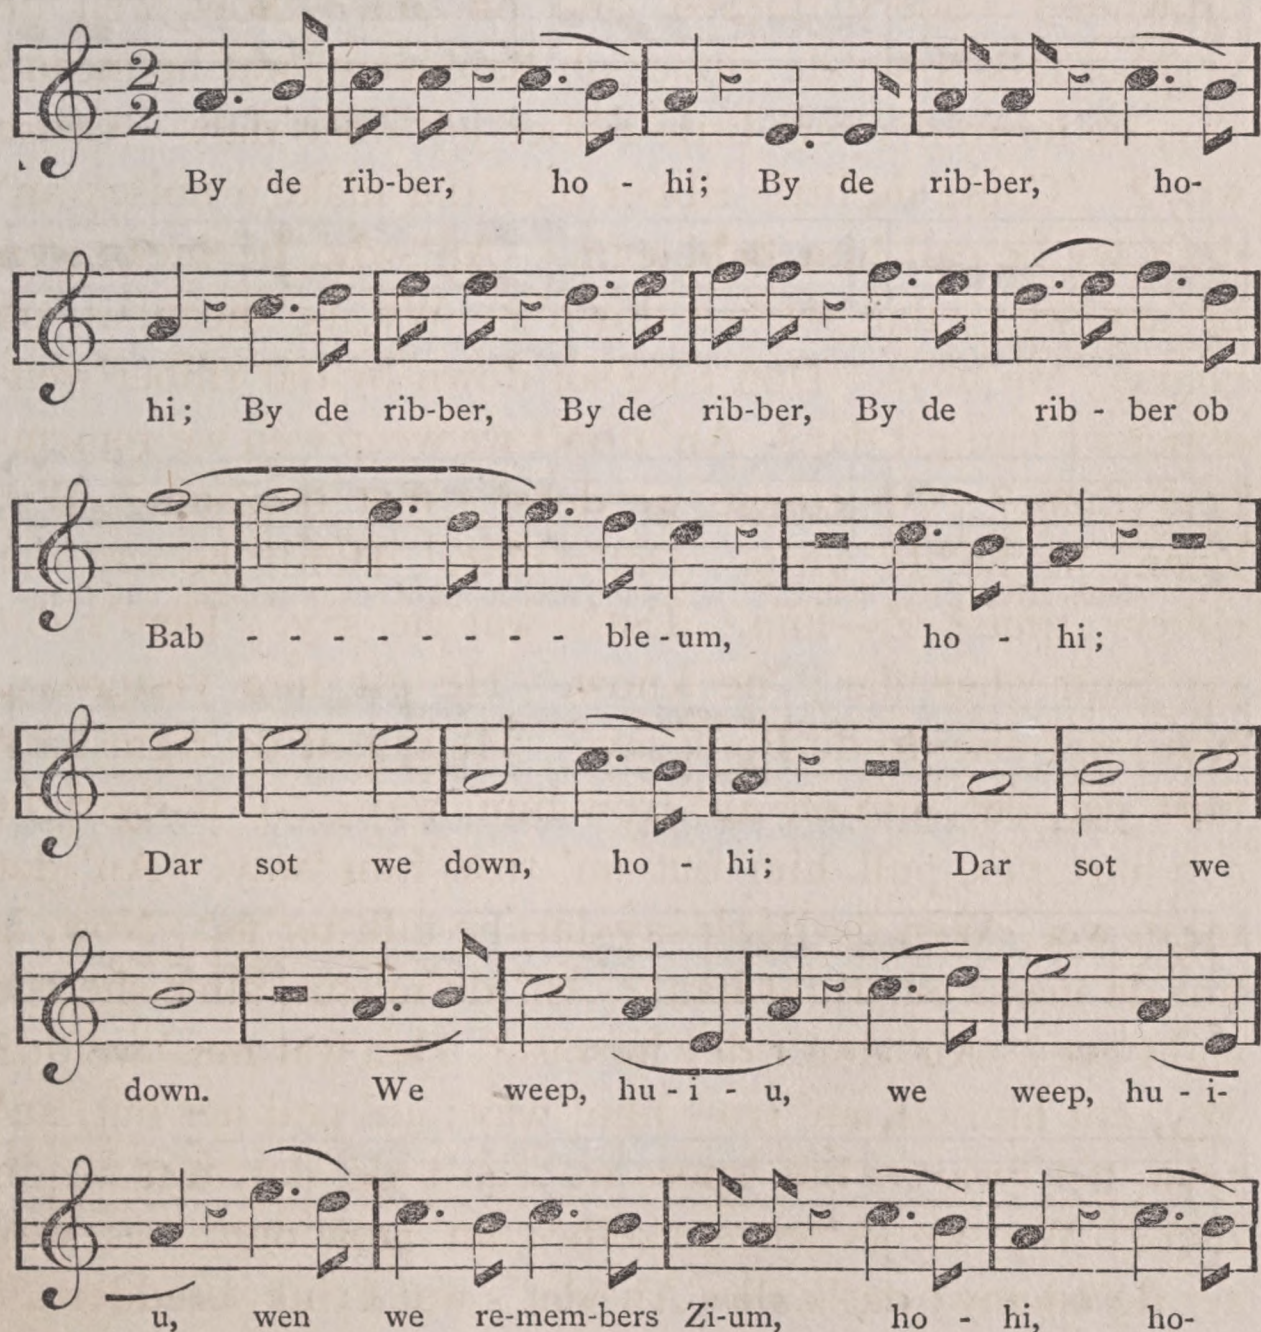 2
2
By de rib-ber, ho - hi; By de rib-ber, ho-
hi; By de rib-ber, By de rib-ber, By de rib - ber ob
Bab - - - - - - - - - ble-um, ho - hi;
Dar sot we down, ho - hi; Dar sot we
down. We weep, hu - i - u, we weep, hu - i-
u, wen we re-mem-bers Zi-um, ho - hi, ho-